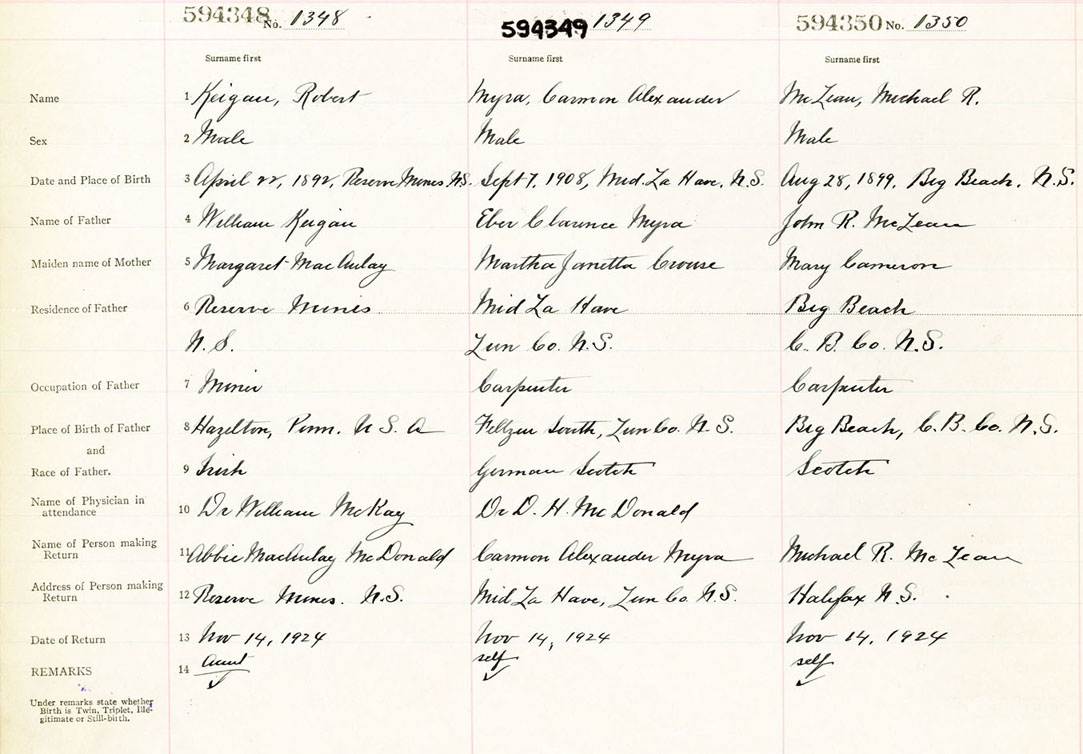 594348 No. 1348 594349 1349 594350 No. 1350
Surname first Surname first Surname first
Name 1 Keigan, Robert Myra, Carmon Alexander McLean, Michael R.
Sex 2 Male Male Male
Date and Place of Birth 3 April 22, 1892, Reserve Mines N.S. Sept 7, 1908, Mid. La Have, N.S. Aug 28, 1899, Big Beach, N.S.
Name of Father 4 William Keigan Eber Clarence Myra John R. McLean
Maiden name of Mother 5 Margaret MacAulay Martha Janetta Crouse Mary Cameron
Residence of Father 6 Reserve Mines Mid La Have Big Beach
N.S. Lun Co. N.S. C. B. Co. N.S.
Occupation of Father 7 Miner Carpenter Carpenter
Place of Birth of Father 8 Hazelton, Penn. U S. A Feltzen South, Lun Co. N.S. Big Beach, C.B. Co. N.S.
and
Race of Father. 9 Irish German Scotch Scotch
Name of Physician in
attendance 10 Dr William McKay Dr D. H. McDonald
Name of Person making
Return 11 Abbie MacAulay McDonald Carmon Alexander Myra Michael R. McLean
Address of Person making
Return 12 Reserve Mines. N.S. Mid La Have, Lun Co N.S. Halifax N.S.
Date of Return 13 Nov 14, 1924 Nov 14, 1924 Nov 14, 1924
REMARKS 14 aunt self self
Under remarks state whether
Birth is Twin, Triplet, Ille-
gitimate or Still-birth.